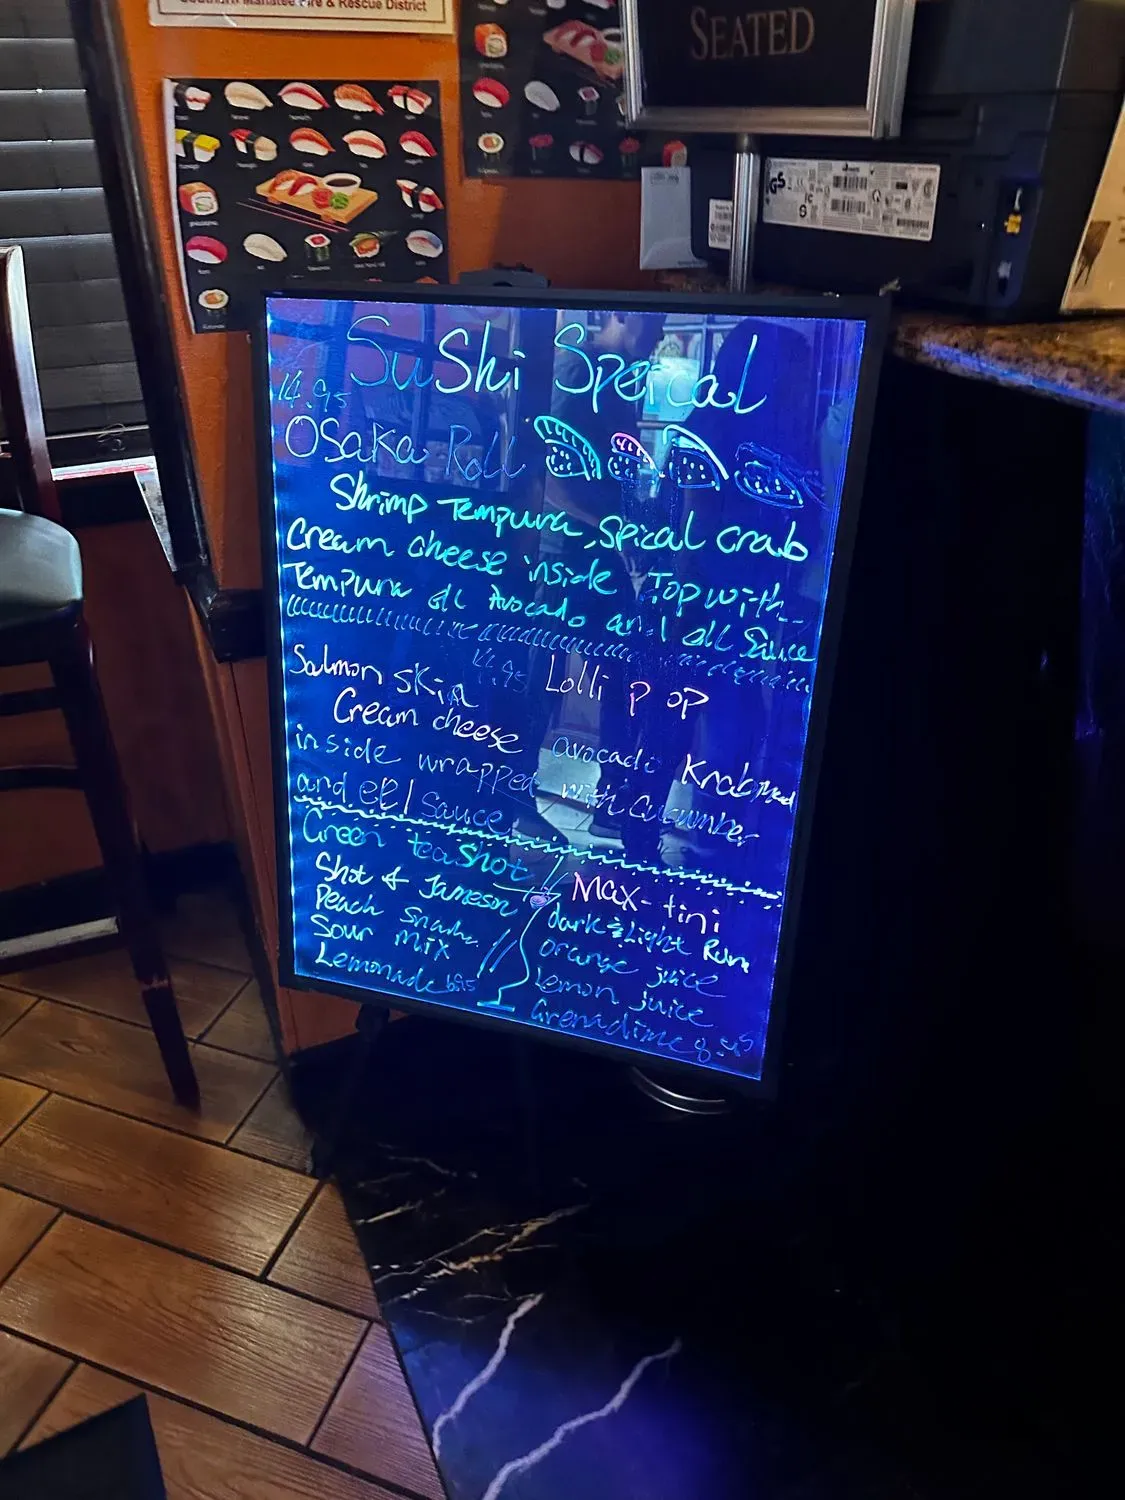 Southern Manatee Fire & Rescue District
SEATED
SuShi Speical
14.95
Osaka Roll
Shrimp Tempura, Speical crab
Cream cheese inside Top with
Tempura ell Avocado and ell Sauce
Salmon skin 14.95 Lolli pop
Cream cheese avocado Krab
inside wrapped with Cucumber
and ell Sauce
Green tea Shot
Shot of Jameson
Peach
Sour mix
Lemonade 6.95
Max-tini
dark & Light Rum
orange juice
Lemon juice
Grenadime